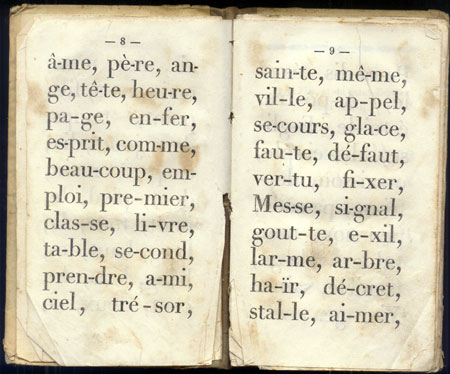 — 8 —
â-me, pè-re, an-
ge, tê-te, heu-re,
pa-ge, en-fer,
es-prit, com-me,
beau-coup, em-
ploi, pre-mier,
clas-se, li-vre,
ta-ble, se-cond,
pren-dre, a-mi,
ciel, tré-sor,
— 9 —
sain-te, mê-me,
vil-le, ap-pel,
se-cours, gla-ce,
fau-te, dé-faut,
ver-tu, fi-xer,
Mes-se, si-gnal,
gout-te, e-xil,
lar-me, ar-bre,
ha-ïr, dé-cret,
stal-le, ai-mer,